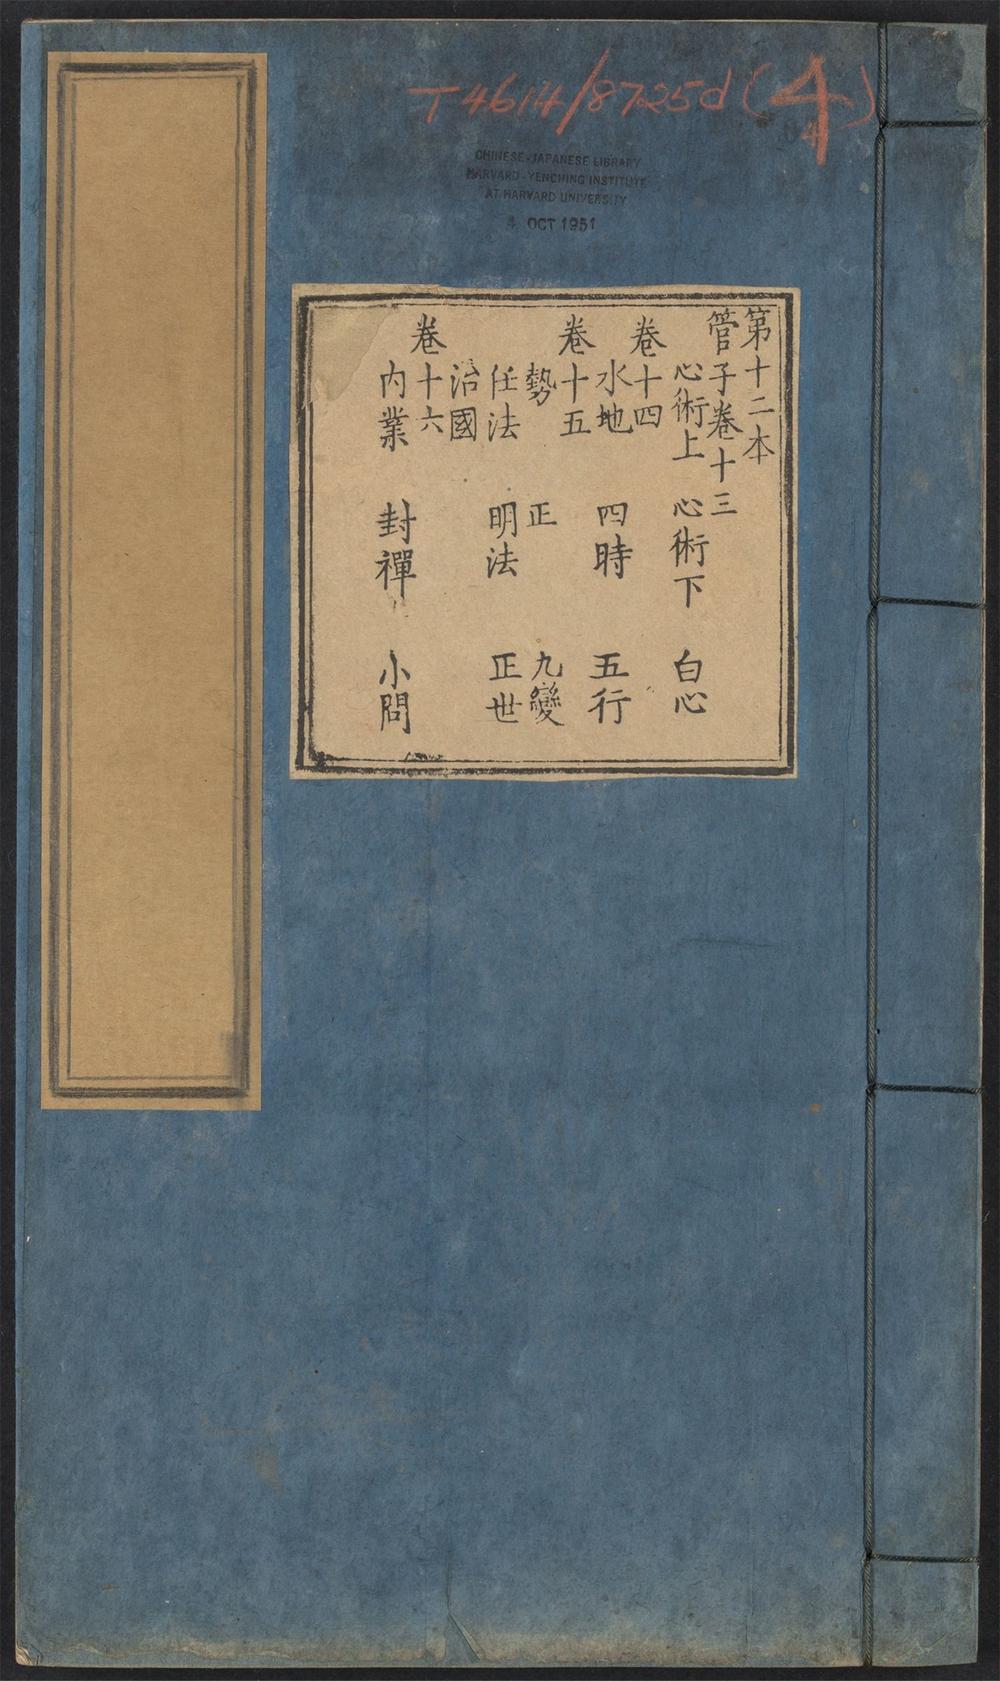 T4614/8725d(4)
4
CHINESE-JAPANESE LIBRARY
HARVARD-YENCHING INSTITUTE
AT HARVARD UNIVERSITY
4 OCT 1951
第十二本
管子卷十三
心術上 心術下 白心
卷十四
水地 四時 五行
卷十五
勢 正 九變
任法 明法 正世
治國
卷十六
內業 封禪 小問